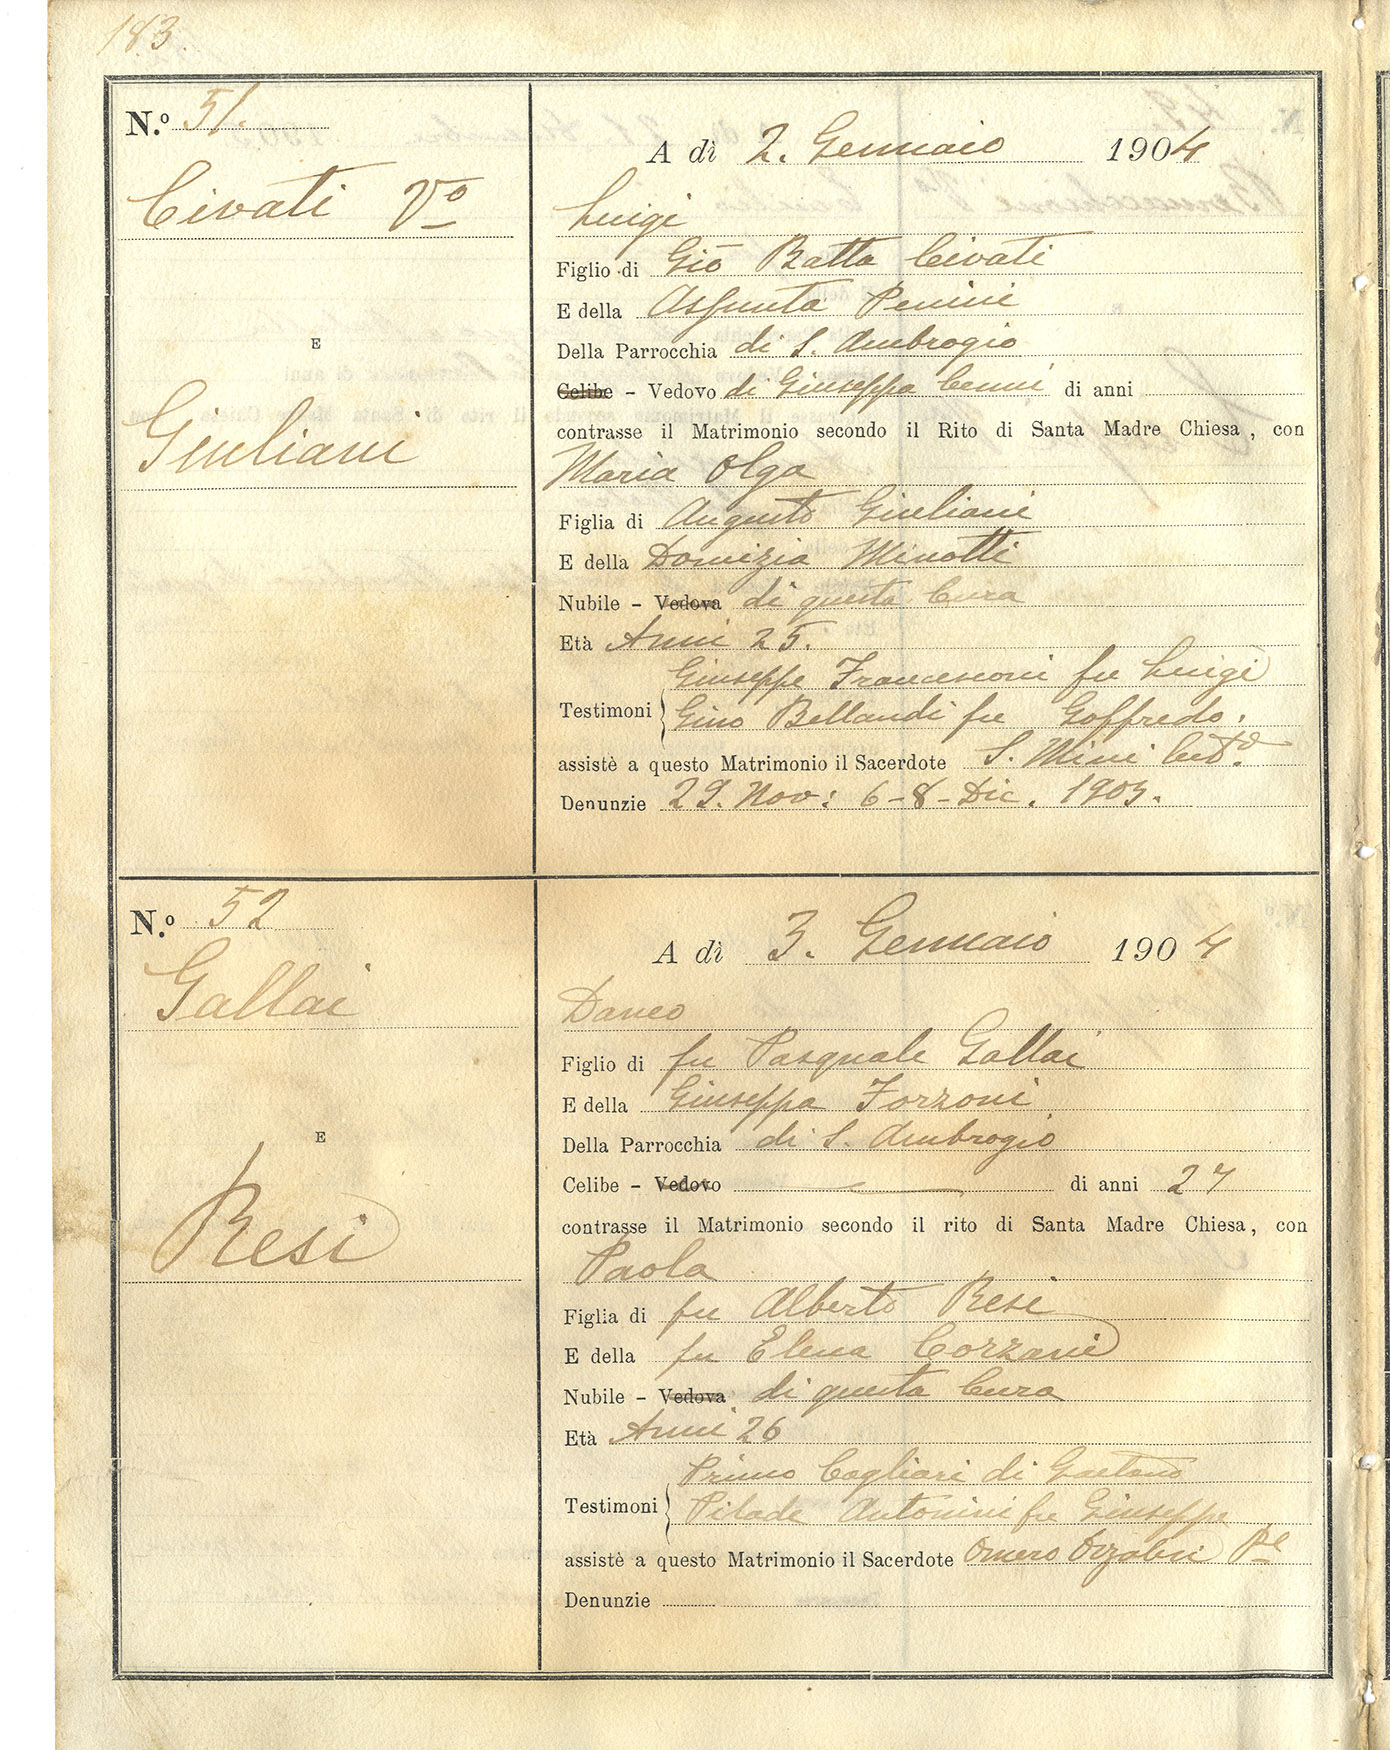 183.
N.o 51.
Civati Vo
E
Giuliani
A dì 2. Gennaio 1904
Luigi
Figlio di Gio Batta Civati
E della Assunta Penini
Della Parrocchia di S. Ambrogio
Celibe - Vedovo di Giuseppa Cenni di anni
contrasse il Matrimonio secondo il Rito di Santa Madre Chiesa, con
Maria Olga
Figlia di Augusto Giuliani
E della Domizia Minotti
Nubile - Vedova di questa Cura
Età Anni 25.
Giuseppe Francesconi fu Luigi
Testimoni Gino Bellandi fu Goffredo.
assistè a questo Matrimonio il Sacerdote S. Mini
Denunzie 29. Nov: 6-8-Dic. 1903.
N.o 52
Gallai
E
Resi
A dì 3. Gennaio 1904
Figlio di fu Pasquale Gallai
E della Giuseppa Forzoni
Della Parrocchia di S. Ambrogio
Celibe - Vedovo di anni 27
contrasse il Matrimonio secondo il rito di Santa Madre Chiesa, con
Paola
Figlia di fu Alberto Resi
E della fu Elena Corzani
Nubile - Vedova di questa Cura
Età Anni 26
Primo Cagliari di Gaetano
Testimoni Pilade Antonini fu Giuseppe
assistè a questo Matrimonio il Sacerdote Omero
Denunzie